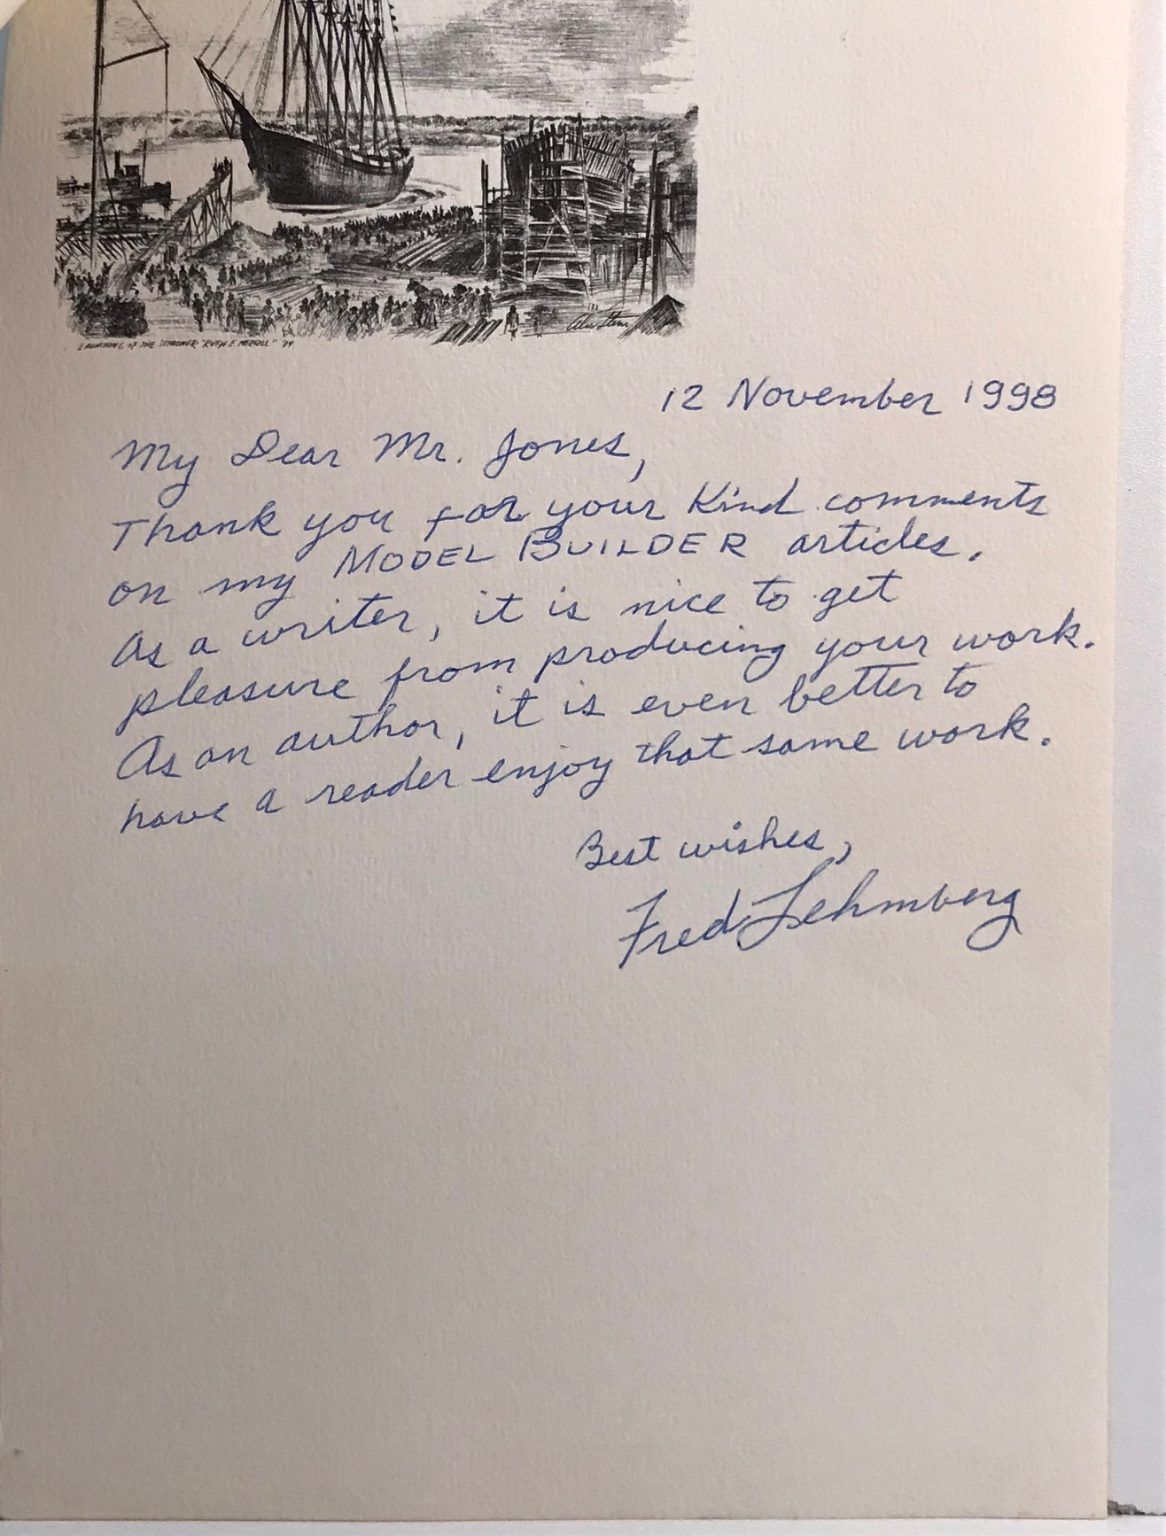 Alex Stern
LAUNCHING OF THE SCHOONER "RUTH E. MERRILL"
12 November 1998
My Dear Mr. Jones,
Thank you for your Kind comments
on my MODEL BUILDER articles.
As a writer, it is nice to get
pleasure from producing your work.
As an author, it is even better to
have a reader enjoy that same work.
Best wishes,
Fred Lehmberg